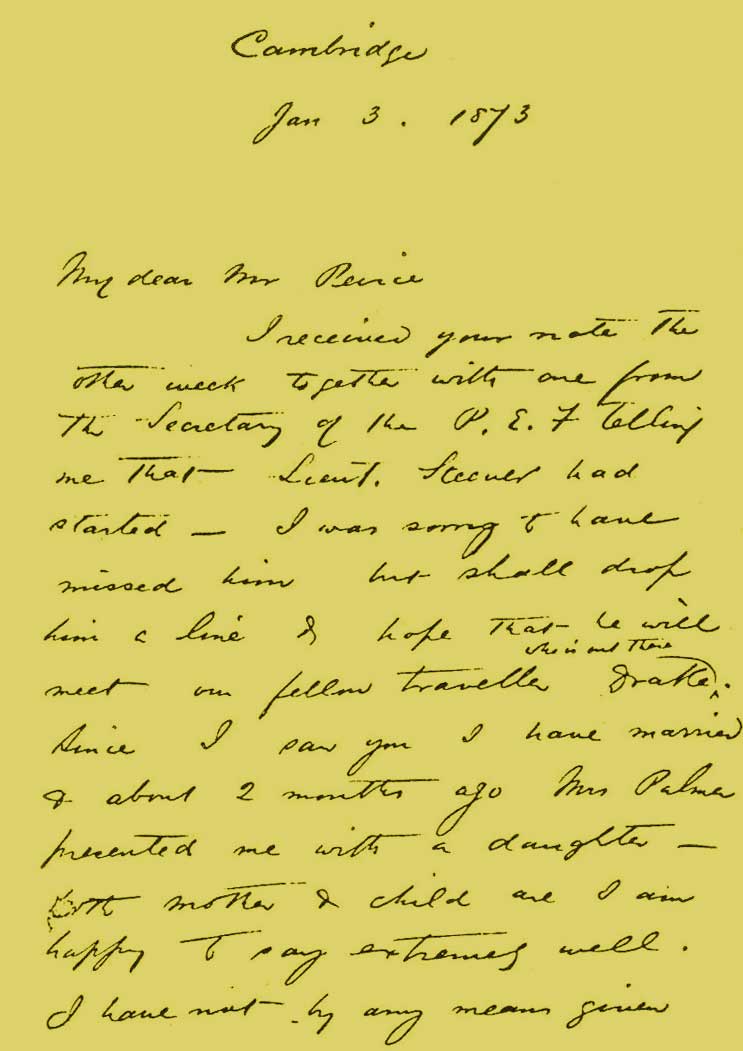 Cambridge
Jan 3. 1873
My dear Mr Peirce
I received your note the
other week together with one from
the Secretary of the P. E. F telling
me that Lieut. Steever had
started — I was sorry to have
missed him but shall drop
him a line & hope that he will
who is out there
meet our fellow traveller Drake.
Since I saw you I have married
& about 2 months ago Mrs Palmer
presented me with a daughter —
both mother & child are I am
happy to say extremely well.
I have not by any means given